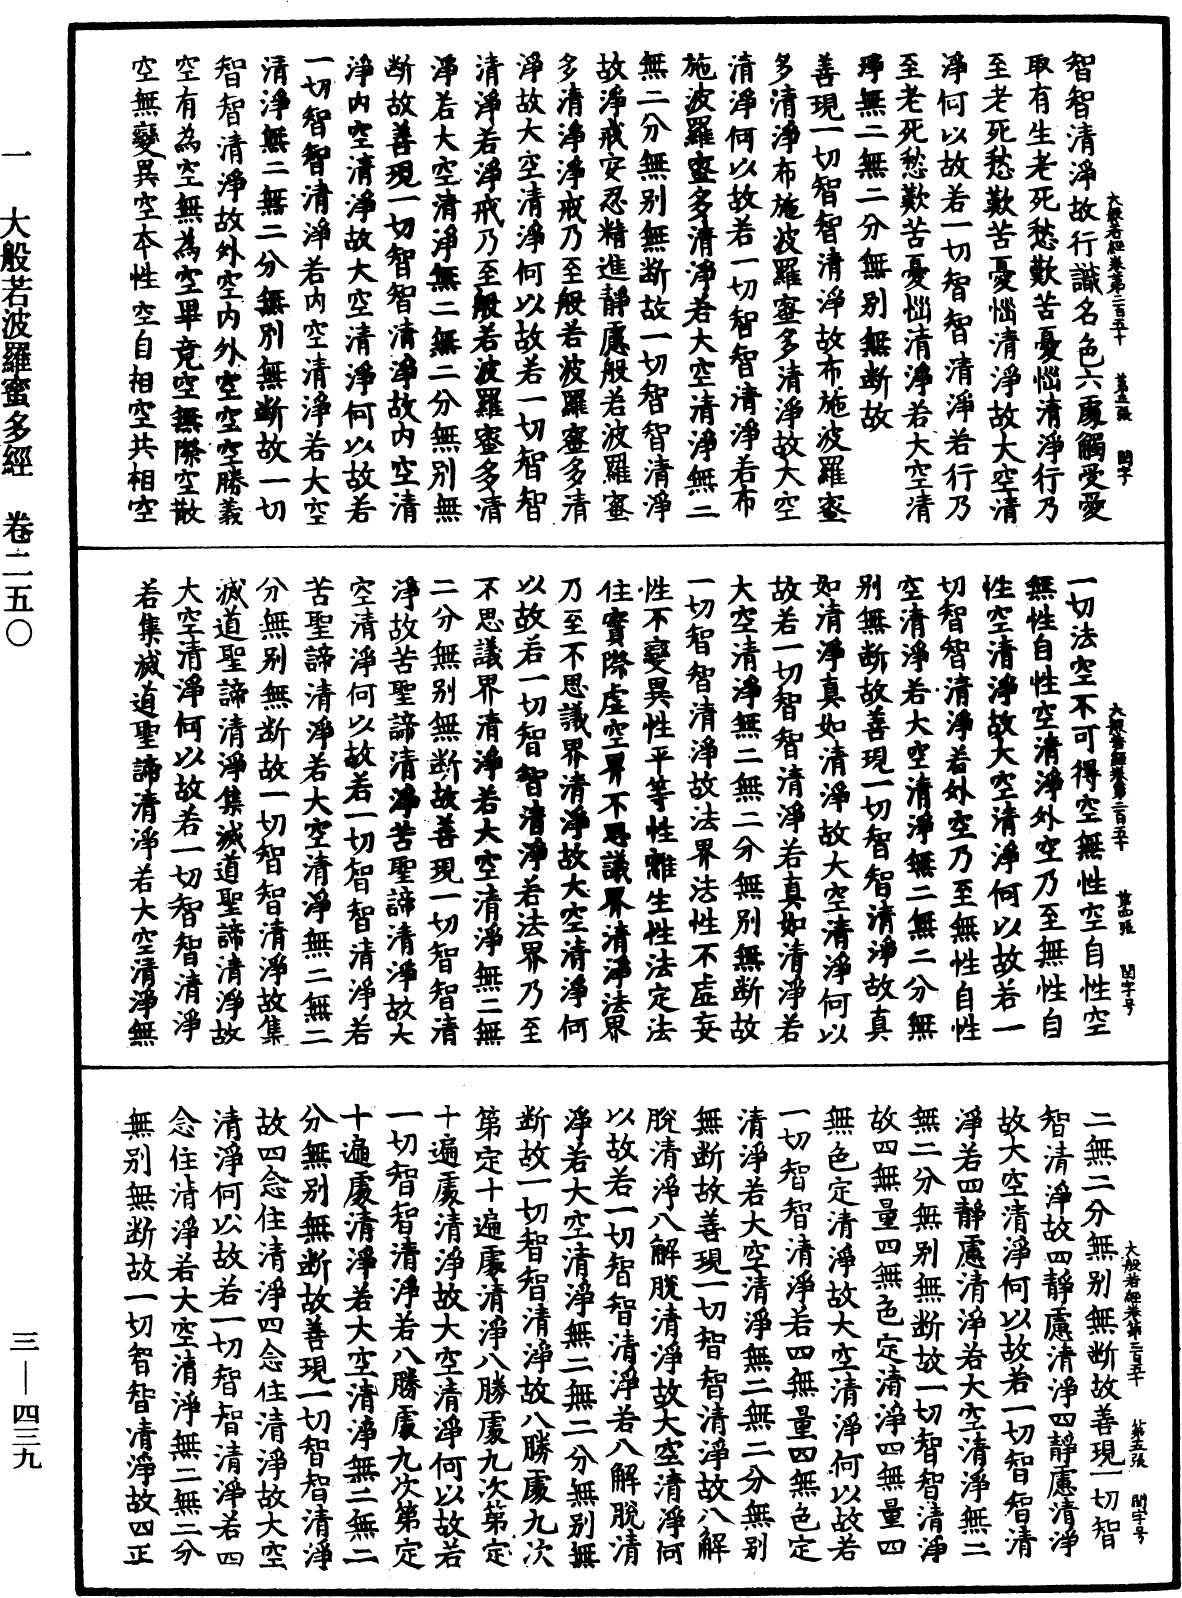 智智清淨故行識名色六處觸受愛
取有生老死愁歎苦憂惱清淨行乃
至老死愁歎苦憂惱清淨故大空清
淨何以故若一切智智清淨若行乃
至老死愁歎苦憂惱清淨若大空清
淨無二無二分無別無斷故
善現一切智智清淨故布施波羅蜜
多清淨布施波羅蜜多清淨故大空
清淨何以故若一切智智清淨若布
施波羅蜜多清淨若大空清淨無二
無二分無別無斷故一切智智清淨
故淨戒安忍精進靜慮般若波羅蜜
多清淨淨戒乃至般若波羅蜜多清
淨故大空清淨何以故若一切智智
清淨若淨戒乃至般若波羅蜜多清
淨若大空清淨無二無二分無別無
斷故善現一切智智清淨故內空清
淨內空清淨故大空清淨何以故若
一切智智清淨若內空清淨若大空
清淨無二無二分無別無斷故一切
智智清淨故外空內外空空空勝義
空有為空無為空畢竟空無際空散
空無變異空本性空自相空共相空
大般若經卷第二百五十 閏字
一切法空不可得空無性空自性空
無性自性空清淨外空乃至無性自
性空清淨故大空清淨何以故若一
切智智清淨若外空乃至無性自性
空清淨若大空清淨無二無二分無
別無斷故善現一切智智清淨故真
如清淨真如清淨故大空清淨何以
故若一切智智清淨若真如清淨若
大空清淨無二無二分無別無斷故
一切智智清淨故法界法性不虛妄
性不變異性平等性離生性法定法
住實際虛空界不思議界清淨法界
乃至不思議界清淨故大空清淨何
以故若一切智智清淨若法界乃至
不思議界清淨若大空清淨無二無
二分無別無斷故善現一切智智清
淨故苦聖諦清淨苦聖諦清淨故大
空清淨何以故若一切智智清淨若
苦聖諦清淨若大空清淨無二無二
分無別無斷故一切智智清淨故集
滅道聖諦清淨集滅道聖諦清淨故
大空清淨何以故若一切智智清淨
若集滅道聖諦清淨若大空清淨無
大般若經卷第二百五十 第四張 閏字号
二無二分無別無斷故善現一切智
智清淨故四靜慮清淨四靜慮清淨
故大空清淨何以故若一切智智清
淨若四靜慮清淨若大空清淨無二
無二分無別無斷故一切智智清淨
故四無量四無色定清淨四無量四
無色定清淨故大空清淨何以故若
一切智智清淨若四無量四無色定
清淨若大空清淨無二無二分無別
無斷故善現一切智智清淨故八解
脫清淨八解脫清淨故大空清淨何
以故若一切智智清淨若八解脫清
淨若大空清淨無二無二分無別無
斷故一切智智清淨故八勝處九次
第定十遍處清淨八勝處九次第定
十遍處清淨故大空清淨何以故若
一切智智清淨若八勝處九次第定
十遍處清淨若大空清淨無二無二
分無別無斷故善現一切智智清淨
故四念住清淨四念住清淨故大空
清淨何以故若一切智智清淨若四
念住清淨若大空清淨無二無二分
無別無斷故一切智智清淨故四正
大般若經卷第二百五十 第五張 閏字号
一 大般若波羅蜜多經 卷二五〇
三—四三九